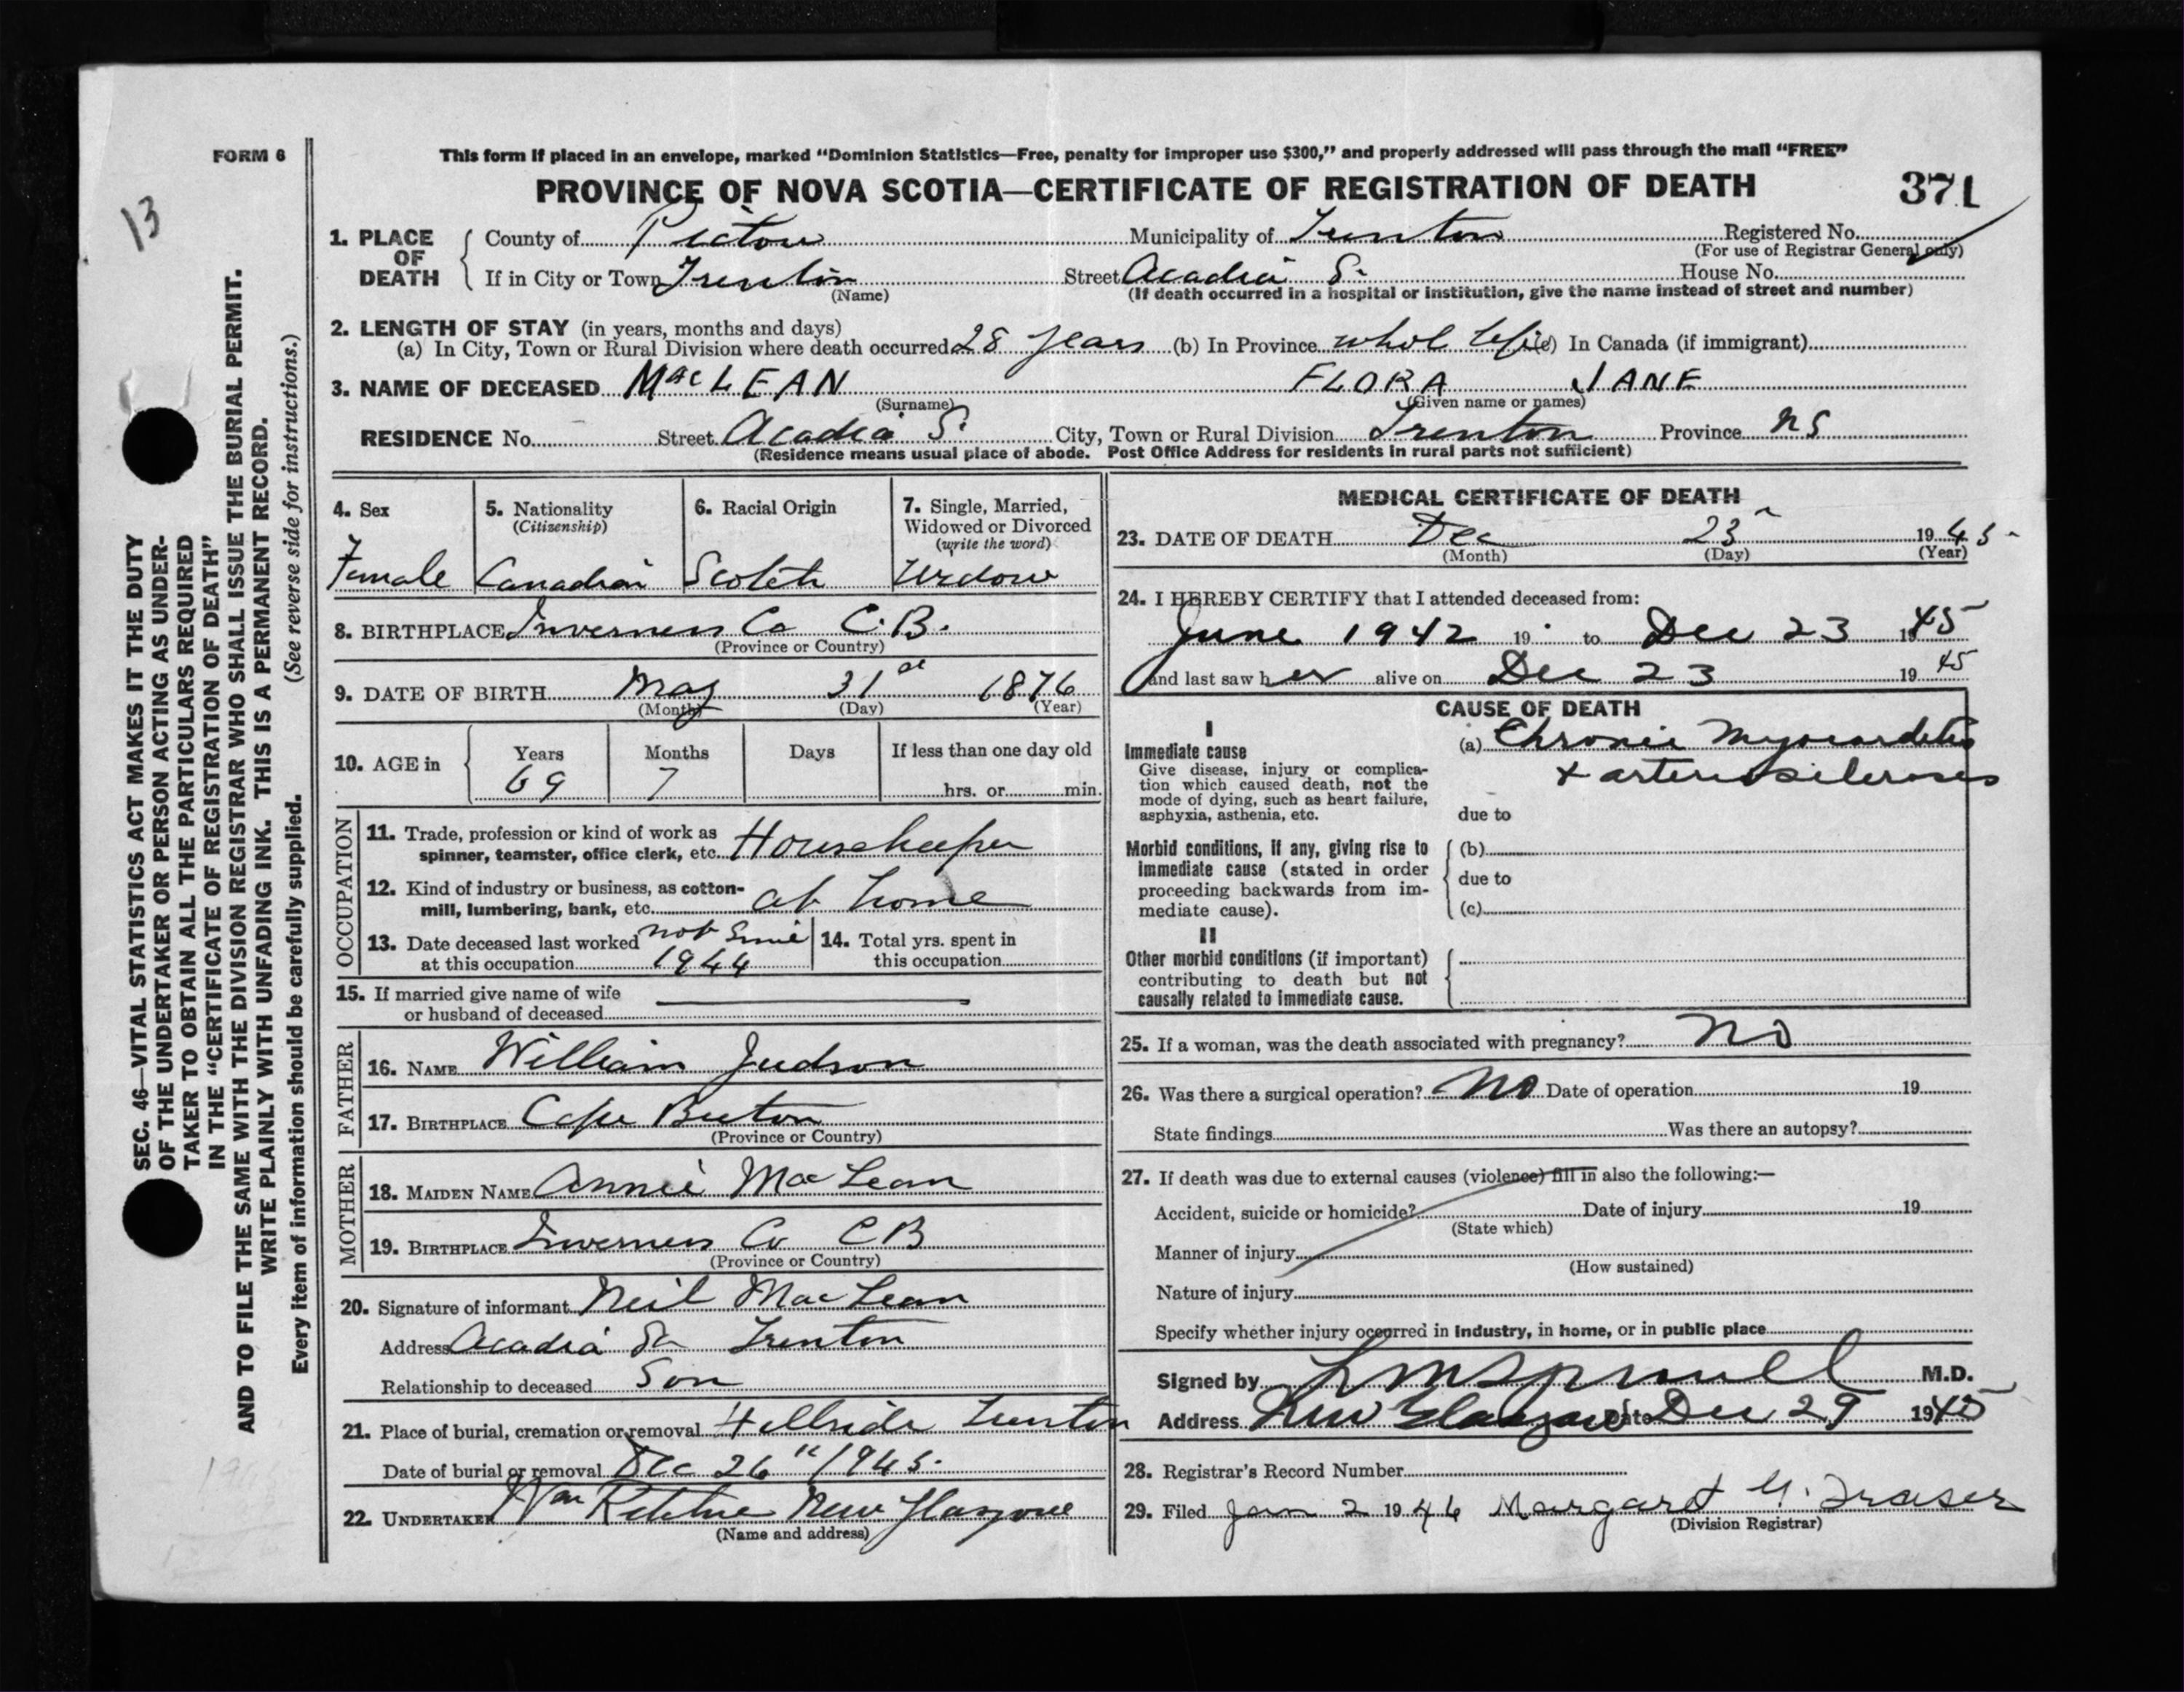 FORM 6
13
This form if placed in an envelope, marked “Dominion Statistics—Free, penalty for improper use $300,” and properly addressed will pass through the mail “FREE”
PROVINCE OF NOVA SCOTIA—CERTIFICATE OF REGISTRATION OF DEATH 371
1. PLACE OF DEATH
County of Pictou Municipality of Trenton Registered No.
(For use of Registrar General only)
If in City or Town Trenton Street Acadia St House No.
(Name)
(If death occurred in a hospital or institution, give the name instead of street and number)
2. LENGTH OF STAY (in years, months and days)
(a) In City, Town or Rural Division where death occurred 28 years (b) In Province whol life (c) In Canada (if immigrant)
3. NAME OF DECEASED MacLEAN FLORA JANE
(Surname) (Given name or names)
RESIDENCE No. Street Acadia St City, Town or Rural Division Trenton Province NS
(Residence means usual place of abode. Post Office Address for residents in rural parts not sufficient)
4. Sex
Female
5. Nationality
(Citizenship)
Canadian
6. Racial Origin
Scotch
7. Single, Married,
Widowed or Divorced
(write the word)
Widow
8. BIRTHPLACE Inverness Co C.B.
(Province or Country)
9. DATE OF BIRTH May 31st 1876
(Month) (Day) (Year)
10. AGE in
Years Months Days If less than one day old
69 7 hrs. or min.
OCCUPATION
11. Trade, profession or kind of work as
spinner, teamster, office clerk, etc. Housekeeper
12. Kind of industry or business, as cotton-
mill, lumbering, bank, etc. at home
13. Date deceased last worked not since
at this occupation 1944
14. Total yrs. spent in
this occupation
15. If married give name of wife
or husband of deceased
FATHER
16. NAME William Judson
17. BIRTHPLACE Cape Breton
(Province or Country)
MOTHER
18. MAIDEN NAME Annie MacLean
19. BIRTHPLACE Inverness Co CB
(Province or Country)
20. Signature of informant Neil MacLean
Address Acadia St Trenton
Relationship to deceased Son
21. Place of burial, cremation or removal Hillside Trenton
Date of burial or removal Dec 26" 1945
22. UNDERTAKER Wm Ritchie New Glasgow
(Name and address)
MEDICAL CERTIFICATE OF DEATH
23. DATE OF DEATH Dec 23 1945
(Month) (Day) (Year)
24. I HEREBY CERTIFY that I attended deceased from:
June 1942 19 to Dec 23 1945
and last saw her alive on Dec 23 1945
CAUSE OF DEATH
I
Immediate cause
Give disease, injury or complica-
tion which caused death, not the
mode of dying, such as heart failure,
asphyxia, asthenia, etc.
(a) Chronic Myocarditis
+ arteriosclerosis
due to
Morbid conditions, if any, giving rise to
immediate cause (stated in order
proceeding backwards from im-
mediate cause).
(b)
due to
(c)
II
Other morbid conditions (if important)
contributing to death but not
causally related to immediate cause.
25. If a woman, was the death associated with pregnancy? No
26. Was there a surgical operation? No Date of operation 19
State findings Was there an autopsy?
27. If death was due to external causes (violence) fill in also the following:—
Accident, suicide or homicide? Date of injury 19
(State which)
Manner of injury
(How sustained)
Nature of injury
Specify whether injury occurred in industry, in home, or in public place
Signed by M.D.
Address New Glasgow Date Dec 29 1945
28. Registrar's Record Number
29. Filed Jan 2 1946 Margaret G. Fraser
(Division Registrar)
SEC. 46—VITAL STATISTICS ACT MAKES IT THE DUTY
OF THE UNDERTAKER OR PERSON ACTING AS UNDER-
TAKER TO OBTAIN ALL THE PARTICULARS REQUIRED
IN THE “CERTIFICATE OF REGISTRATION OF DEATH”
AND TO FILE THE SAME WITH THE DIVISION REGISTRAR WHO SHALL ISSUE THE BURIAL PERMIT.
WRITE PLAINLY WITH UNFADING INK. THIS IS A PERMANENT RECORD.
Every item of information should be carefully supplied. (See reverse side for instructions.)